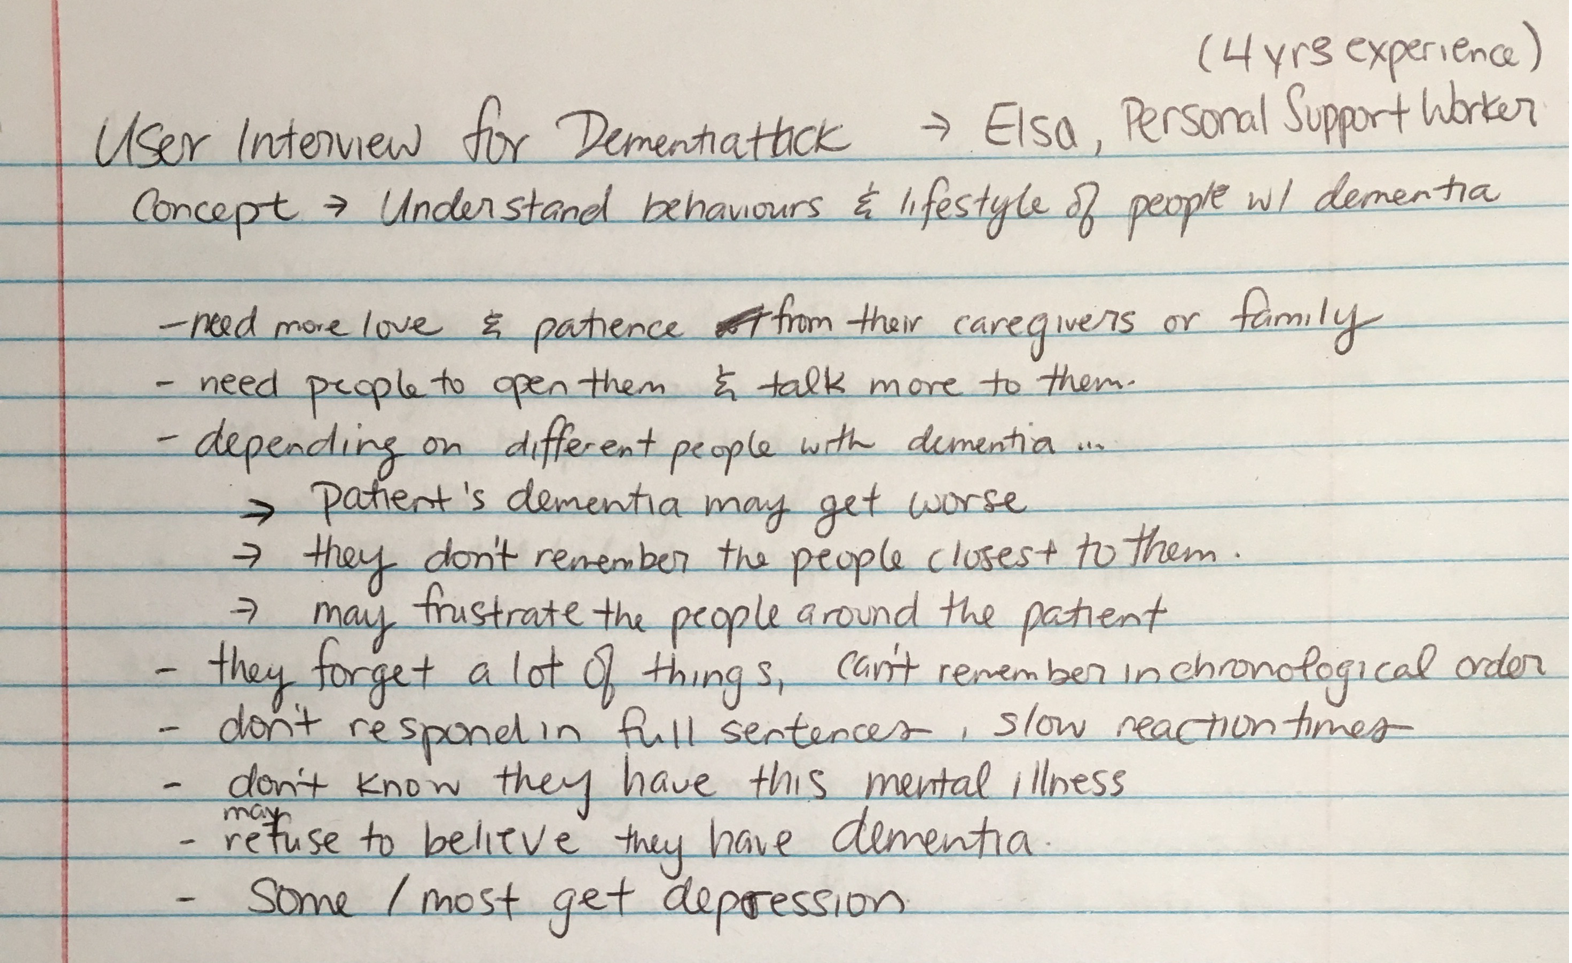 (4 yrs experience)
User Interview for Dementiattack → Elsa, Personal Support Worker
Concept → Understand behaviours & lifestyle of people w/ dementia
- need more love & patience from their caregivers or family
- need people to open them & talk more to them.
- depending on different people with dementia ...
→ Patient's dementia may get worse
→ they don't remember the people closest to them.
→ may frustrate the people around the patient
- they forget a lot of things, can't remember in chronological order
- don't respond in full sentences, slow reaction times
- don't know they have this mental illness
may
- refuse to believe they have dementia.
- Some / most get depression